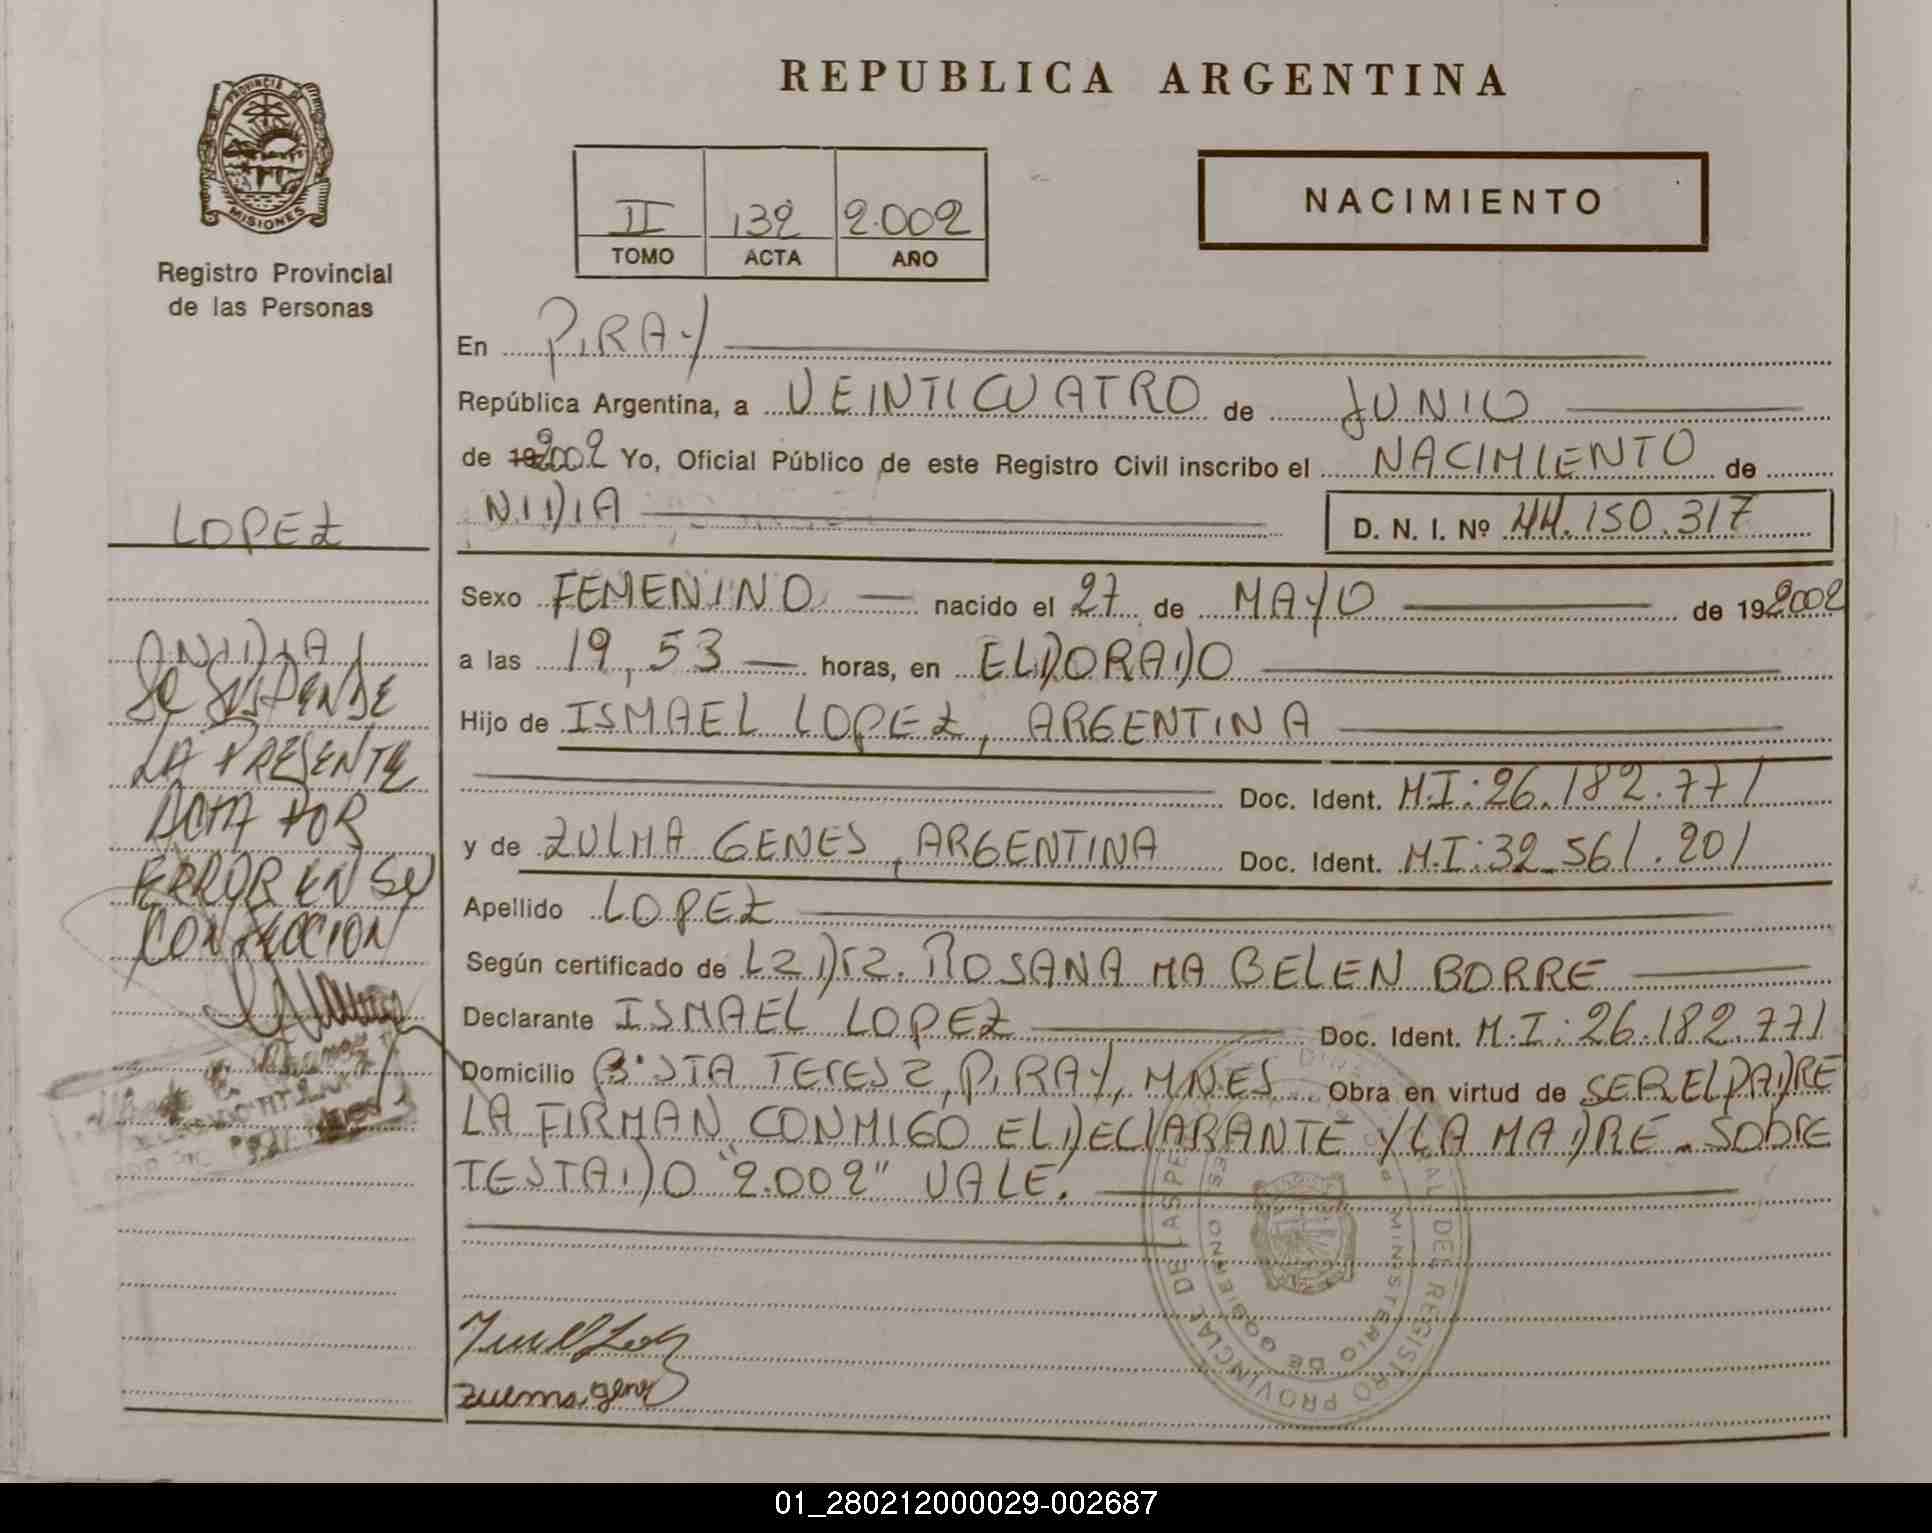 REPUBLICA ARGENTINA
PROVINCIA DE
MISIONES
Registro Provincial
de las Personas
II 132 2.002
TOMO ACTA AÑO
NACIMIENTO
En PIRAY
República Argentina, a VEINTICUATRO de JUNIO
de 19 2002 Yo, Oficial Público de este Registro Civil inscribo el NACIMIENTO de
NIDIA D. N. I. Nº 44.150.317
LOPEZ
Sexo FEMENINO nacido el 27 de MAYO de 19 2002
a las 19,53 horas, en ELDORADO
Hijo de ISMAEL LOPEZ, ARGENTINA
Doc. Ident. M.I: 26.182.771
y de ZULMA GENES, ARGENTINA Doc. Ident. M.I: 32.561.201
Apellido LOPEZ
Según certificado de ROSANA MABELEN BORRE
Declarante ISMAEL LOPEZ Doc. Ident. M.I: 26.182.771
Domicilio Bº STA TERESA, PIRAY, MNES Obra en virtud de SER EL PADRE
LA FIRMAN CONMIGO EL DECLARANTE Y LA MADRE - SOBRE
TESTADO "2.002" VALE.
NIDIA
SE SUSPENDE
LA PRESENTE
ACTA POR
ERROR EN SU
CONFECCION
zulma genes
PROVINCIAL DE LAS PE
AL DEL REGISTRO
MINISTERIO DE GOBIERNO
01_280212000029-002687